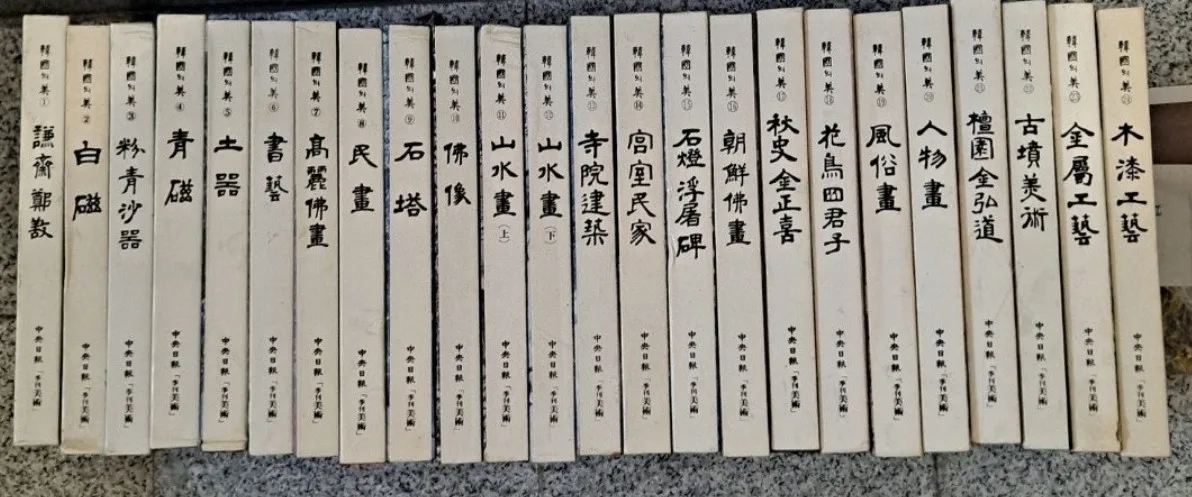 韓國의美①
謙齋鄭敾
中央日報「季刊美術」
韓國의美②
白磁
中央日報「季刊美術」
韓國의美③
粉青沙器
中央日報「季刊美術」
韓國의美④
青磁
中央日報「季刊美術」
韓國의美⑤
土器
中央日報「季刊美術」
韓國의美⑥
書藝
中央日報「季刊美術」
韓國의美⑦
高麗佛畫
中央日報「季刊美術」
韓國의美⑧
民畫
中央日報「季刊美術」
韓國의美⑨
石塔
中央日報「季刊美術」
韓國의美⑩
佛像
中央日報「季刊美術」
韓國의美⑪
山水畫(上)
中央日報「季刊美術」
韓國의美⑫
山水畫(下)
中央日報「季刊美術」
韓國의美⑬
寺院建築
中央日報「季刊美術」
韓國의美⑭
宮室民家
中央日報「季刊美術」
韓國의美⑮
石燈浮屠碑
中央日報「季刊美術」
韓國의美⑯
朝鮮佛畫
中央日報「季刊美術」
韓國의美⑰
秋史金正喜
中央日報「季刊美術」
韓國의美⑱
花鳥四君子
中央日報「季刊美術」
韓國의美⑲
風俗畫
中央日報「季刊美術」
韓國의美⑳
人物畫
中央日報「季刊美術」
韓國의美㉑
檀園金弘道
中央日報「季刊美術」
韓國의美㉒
古墳美術
中央日報「季刊美術」
韓國의美㉓
金屬工藝
中央日報「季刊美術」
韓國의美㉔
木漆工藝
中央日報「季刊美術」